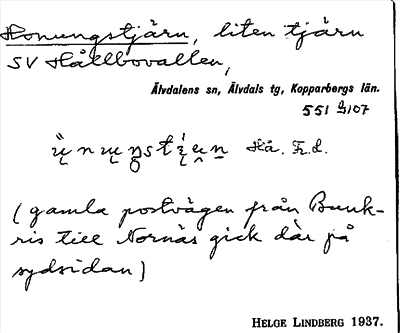 Honungstjärn, liten tjärn
SV Hållbovallen,
Älvdalens sn, Älvdals tg, Kopparbergs län.
551
Hå.
(gamla postvägen från Bunk-
ris till Nornäs gick där på
sydsidan)
HELGE LINDBERG 1937.